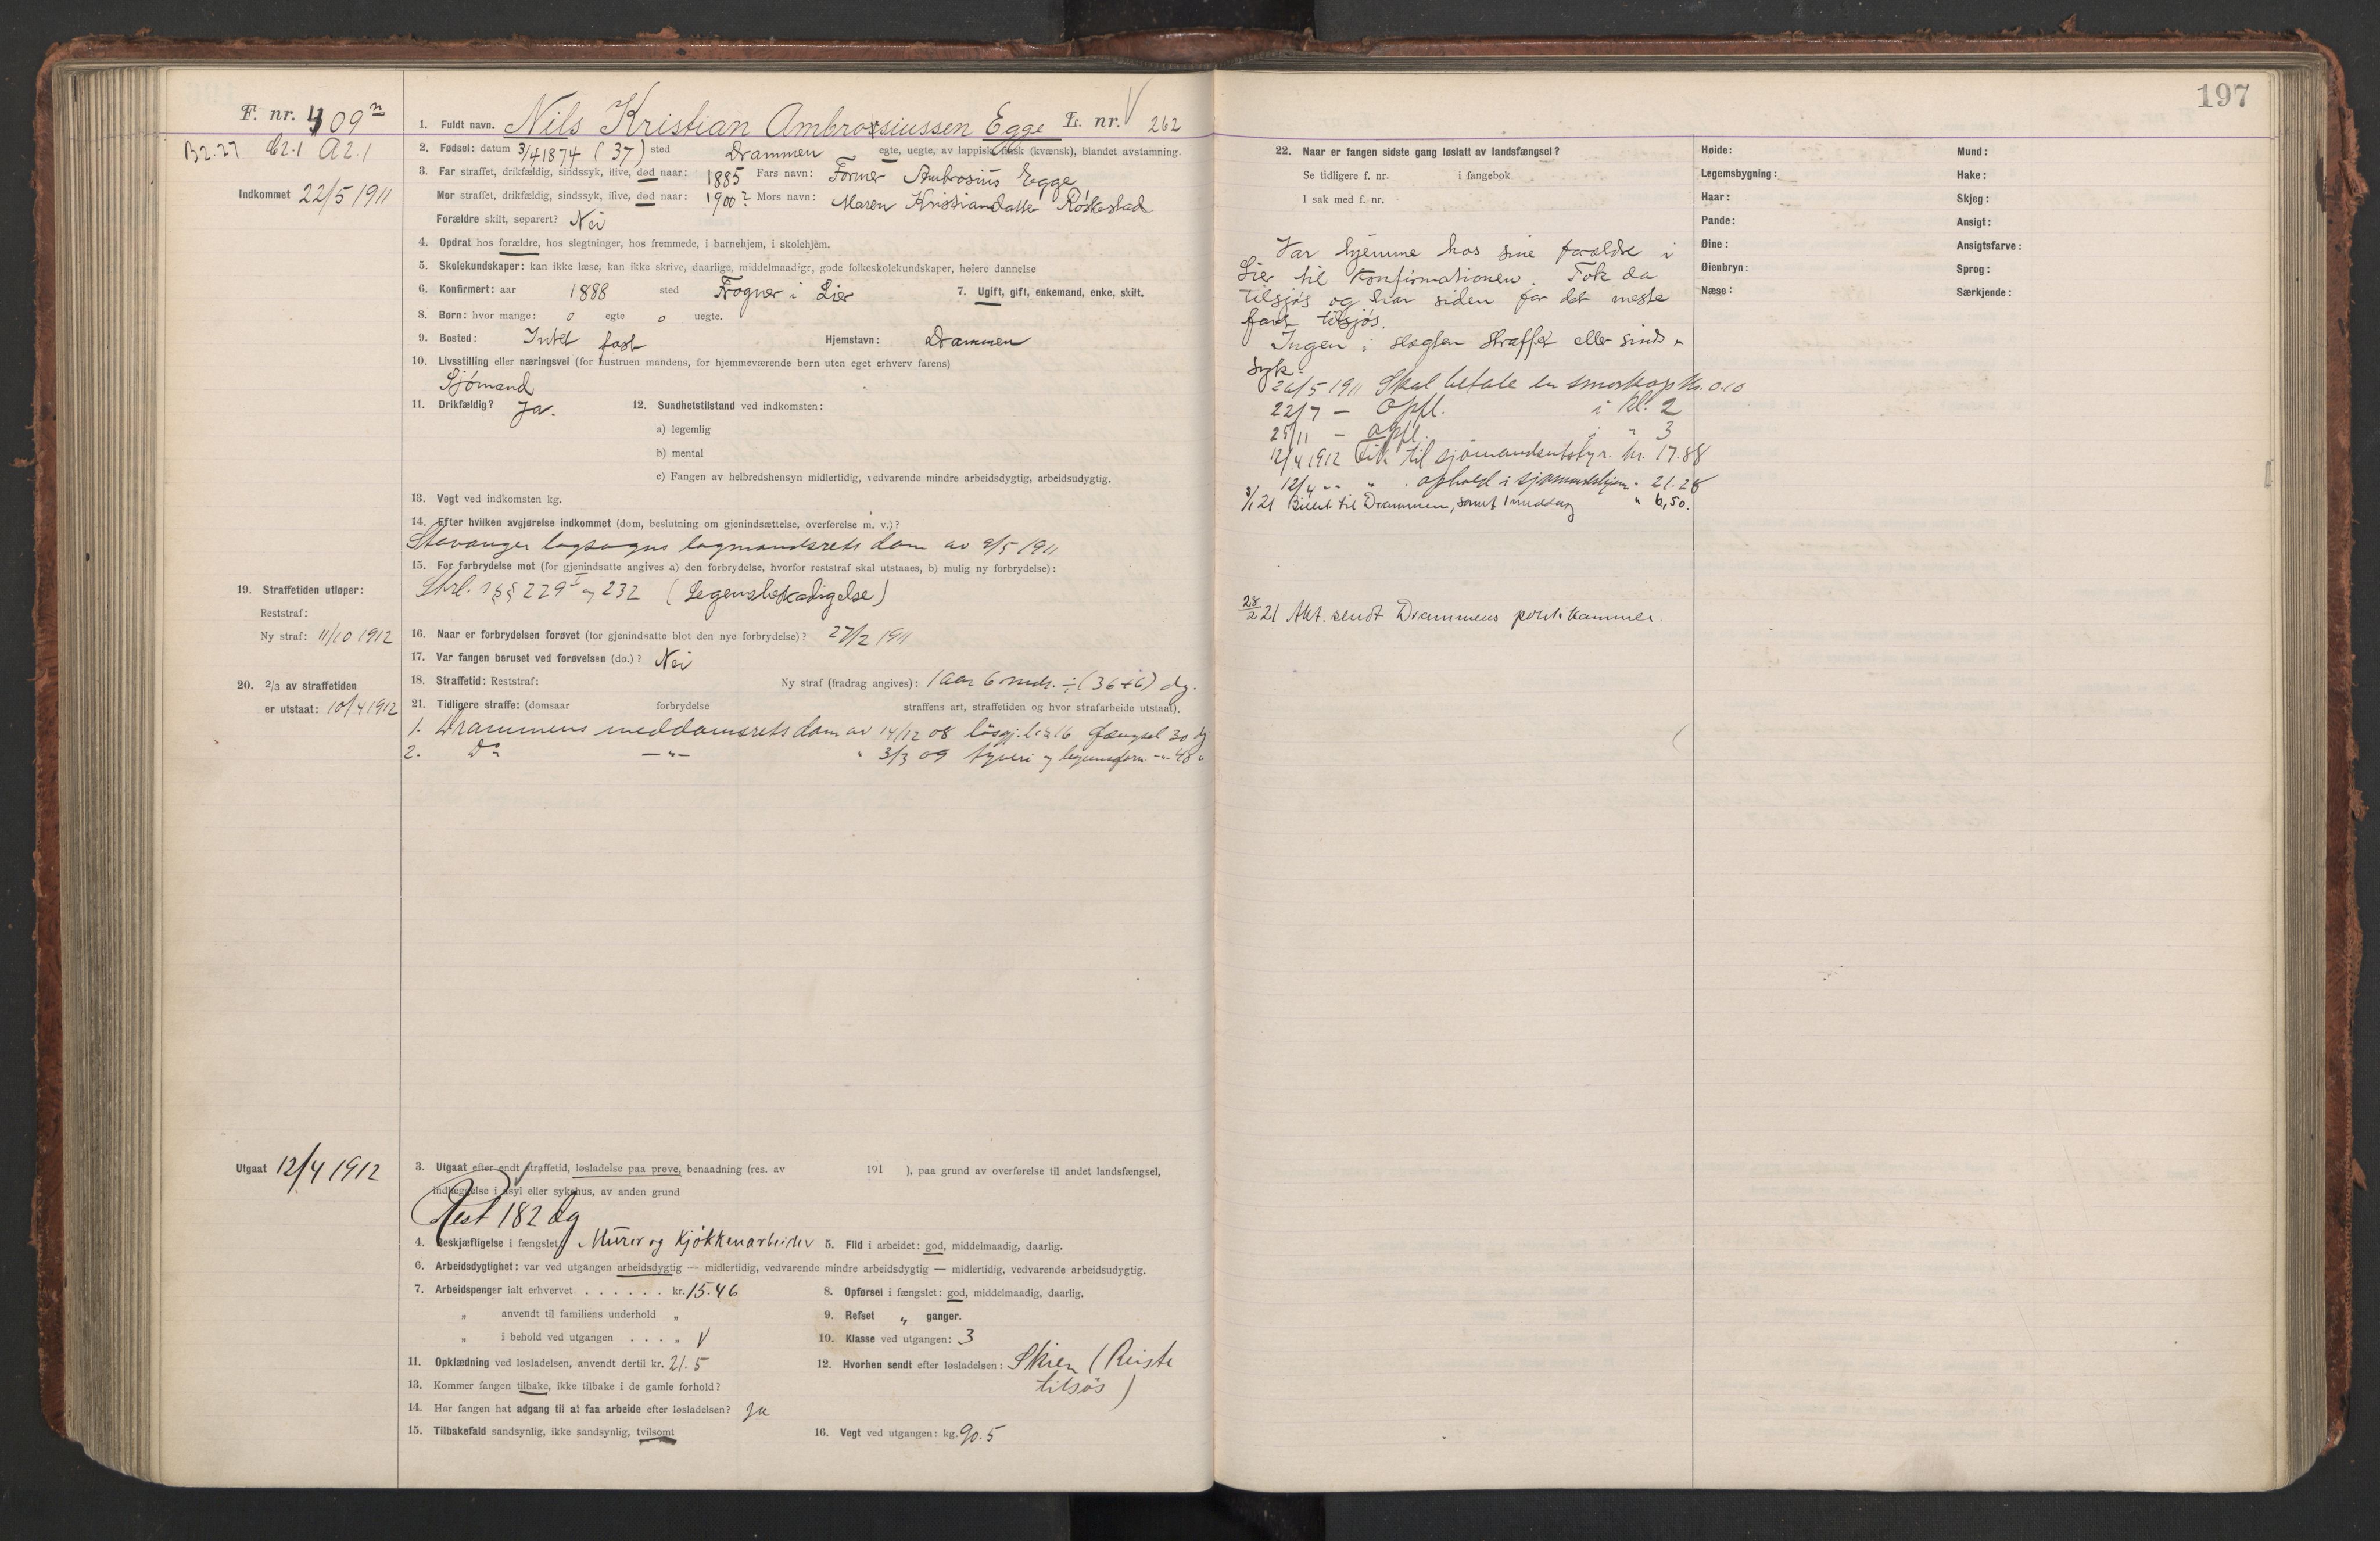 197
F. nr. 409 n
B2.27 C2.1 A2.1
Indkommet 22/5 1911
1. Fuldt navn. Nils Kristian Ambrosiussen Egge L. nr. V 262
2. Fødsel: datum 3/4 1874 (37) sted Drammen egte, uegte, av lappisk, finsk (kvænsk), blandet avstamning.
3. Far straffet, drikfældig, sindssyk, ilive, død naar: 1885 Fars navn: Former Ambrosius Egge
Mor straffet, drikfældig, sindssyk, ilive, død naar: 1900? Mors navn: Maren Kristiansdatter Röskestad
Forældre skilt, separert? Nei
4. Opdrat hos forældre, hos slegtninger, hos fremmede, i barnehjem, i skolehjem.
5. Skolekundskaper: kan ikke læse, kan ikke skrive, daarlige, middelmaadige, gode folkeskolekundskaper, høiere dannelse
6. Konfirmert: aar 1888 sted Frogner i Lier 7. Ugift, gift, enkemand, enke, skilt.
8. Børn: hvor mange: 0 egte 0 uegte.
9. Bosted: Intet fast Hjemstavn: Drammen
10. Livsstilling eller næringsvei (for hustruen mandens, for hjemmeværende børn uten eget erhverv farens)
Sjömand
11. Drikfældig? Ja. 12. Sundhetstilstand ved indkomsten:
a) legemlig
b) mental
c) Fangen av helbredshensyn midlertidig, vedvarende mindre arbeidsdygtig, arbeidsudygtig.
13. Vegt ved indkomsten kg.
14. Efter hvilken avgjørelse indkommet (dom, beslutning om gjenindsættelse, overførelse m. v.)?
Stavanger lagsogns lagmandsrets dom av 9/5 1911
15. For forbrydelse mot (for gjenindsatte angives a) den forbrydelse, hvorfor reststraf skal utstaaes, b) mulig ny forbrydelse):
Strl. §§ 229 I og 232 (Legemsbeskadigelse)
19. Straffetiden utløper:
Reststraf:
Ny straf: 11/10 1912
16. Naar er forbrydelsen forøvet (for gjenindsatte blot den nye forbrydelse)? 27/2 1911
17. Var fangen beruset ved forøvelsen (do.)? Nei
18. Straffetid: Reststraf: Ny straf (fradrag angives): 1 aar 6 mdr. ÷ (36+6) dg.
20. 2/3 av straffetiden
er utstaat: 10/4 1912
21. Tidligere straffe: (domsaar forbrydelse straffens art, straffetiden og hvor strafarbeide utstaat).
1. Drammens meddomsrets dom av 14/12 08 løsgj.l. § 16 fængsel 30 dg
2. Do —"— " 3/3 09 tyveri og legemsforn. —" 48 "
Utgaat 12/4 1912
3. Utgaat efter endt straffetid, løsladelse paa prøve, benaadning (res. av 191 ), paa grund av overførelse til andet landsfængsel,
indlæggelse i asyl eller sykehus, av anden grund
Rest 182 dg
4. Beskjæftigelse i fængslet: Murer og Kjøkkenarbeider 5. Flid i arbeidet: god, middelmaadig, daarlig.
6. Arbeidsdygtighet: var ved utgangen arbeidsdygtig — midlertidig, vedvarende mindre arbeidsdygtig — midlertidig, vedvarende arbeidsudygtig.
7. Arbeidspenger ialt erhvervet . . . . . . kr. 15.46 8. Opførsel i fængslet: god, middelmaadig, daarlig.
" anvendt til familiens underhold " 9. Refset " ganger.
" i behold ved utgangen . . . " V 10. Klasse ved utgangen: 3
11. Opklædning ved løsladelsen, anvendt dertil kr. 21.5 12. Hvorhen sendt efter løsladelsen: Skien (Reiste
tilsøs)
13. Kommer fangen tilbake, ikke tilbake i de gamle forhold?
14. Har fangen hat adgang til at faa arbeide efter løsladelsen? Ja
15. Tilbakefald sandsynlig, ikke sandsynlig, tvilsomt 16. Vegt ved utgangen: kg. 90.5
22. Naar er fangen sidste gang løslatt av landsfængsel?
Se tidligere f. nr. i fangebok
I sak med f. nr.
Var hjemme hos sine forældre i
Lier til konfirmationen. Tok da
tilsjøs og har siden for det meste
faret tilsjøs.
Ingen i slægten straffet eller sinds-
syk.
26/5 1911 Skal betale en smørkop kr. 0.10
22/7 — Opfl. i kl. 2
25/11 — opfl. i " 3
12/4 1912 Fik til sjømandsutstyr. kr. 17.88
12/4 " " ophold i sjømandshjem " 21.28
3/1 21 Billet til Drammen, samt 1 middag " 6,50.
28/2 21 Akt. sendt Drammens politikammer.
Høide:
Legemsbygning:
Haar:
Pande:
Øine:
Øienbryn:
Næse:
Mund:
Hake:
Skjeg:
Ansigt:
Ansigtsfarve:
Sprog:
Særkjende: